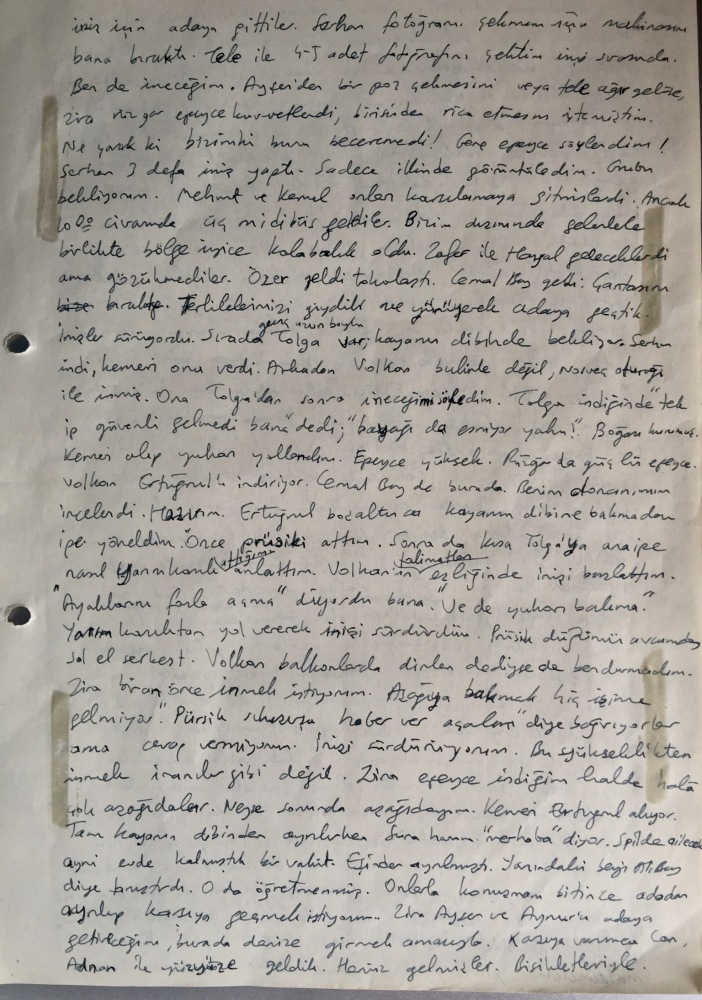 iniş için adaya gittiler. Serhan fotoğrafını çekmem için makinasını
bana bıraktı. Tele ile 4-5 adet fotoğrafını çektim iniş sırasında.
Ben de ineceğim. Ayşen'den bir poz çekmesini veya tele ağır gelirse,
zira rüzgar epeyce kuvvetlendi, birisinden rica etmesini istemiştim.
Ne yazık ki bizimki bunu beceremedi! Gene epeyce söylendim!
Serhan 3 defa iniş yaptı. Sadece ilkinde görüntüledim. Grubu
bekliyorum. Mehmet ve Kemal onları karşılamaya gitmişlerdi. Ancak
10.00 civarında üç midibüs geldiler. Bizim dışımızda gelenlerle
birlikte bölge iyice kalabalık oldu. Zafer ile Hayal geleceklerdi
ama gözükmediler. Özer geldi tokalaştı. Cemal Bey geldi. Çantasını
bıraktı. Terliklerimizi giydik ve yürüyerek adaya geçtik.
İnişler sürüyordu. Sırada genç uzun boylu Tolga var, kayanın dibinde bekliyor. Serhan
indi, kemeri ona verdi. Arkadan Volkan bulinle değil, Norveç oturağı
ile inmiş. Ona Tolga'dan sonra ineceğimi söyledim. Tolga indiğinde "tek
ip güvenli gelmedi bana" dedi; "bayağı da esniyor yahu!". Boğazı kurumuş.
Kemeri alıp yukarı yollandım. Epeyce yüksek. Rüzgar da güçlü epeyce.
Volkan Ertuğrul'u indiriyor. Cemal Bey de burada. Benim donanımım
incelendi. Hazırım. Ertuğrul boşaltınca kayanın dibine bakmadan
ipe yöneldim. Önce prüsiki attım. Sonra da kısa Tolga'ya ana ipe
nasıl yarım kazık attığımı anlattım. Volkan'ın talimatları eşliğinde inişi başlattım.
"Ayaklarını fazla açma" diyordu bana. "Ve de yukarı bakma."
Yarım kazıktan yol vererek inişi sürdürdüm. Prüsik düğümü avcumda,
sol el serbest. Volkan balkonlarda dinlen dediyse de ben durmadım.
Zira bir an önce inmek istiyorum. Aşağıya bakmak hiç işime
gelmiyor. "Pürsik sıkışırsa haber ver açalım" diye bağırıyorlar
ama cevap vermiyorum. İnişi sürdürüyorum. Bu yükseklikten
inmek inanılır gibi değil. Zira epeyce indiğim halde hala
çok aşağıdalar. Neyse sonunda aşağıdayım. Kemeri Ertuğrul alıyor.
Tam kayanın dibinden ayrılırken Sura hanım "merhaba" diyor. Spilde ailecek
aynı evde kalmıştık bir vakit. Eşinden ayrılmıştı. Yanındaki beyi Ali Bey
diye tanıştırdı. O da öğretmenmiş. Onlarla konuşmam bitince adadan
ayrılıp karşıya geçmek istiyorum. Zira Ayşen ve Aynur'u adaya
getireceğim, burada denize girmek amacıyla. Karşıya varınca Can,
Adnan ile yüzyüze geldik. Henüz gelmişler. Bisikletleriyle.